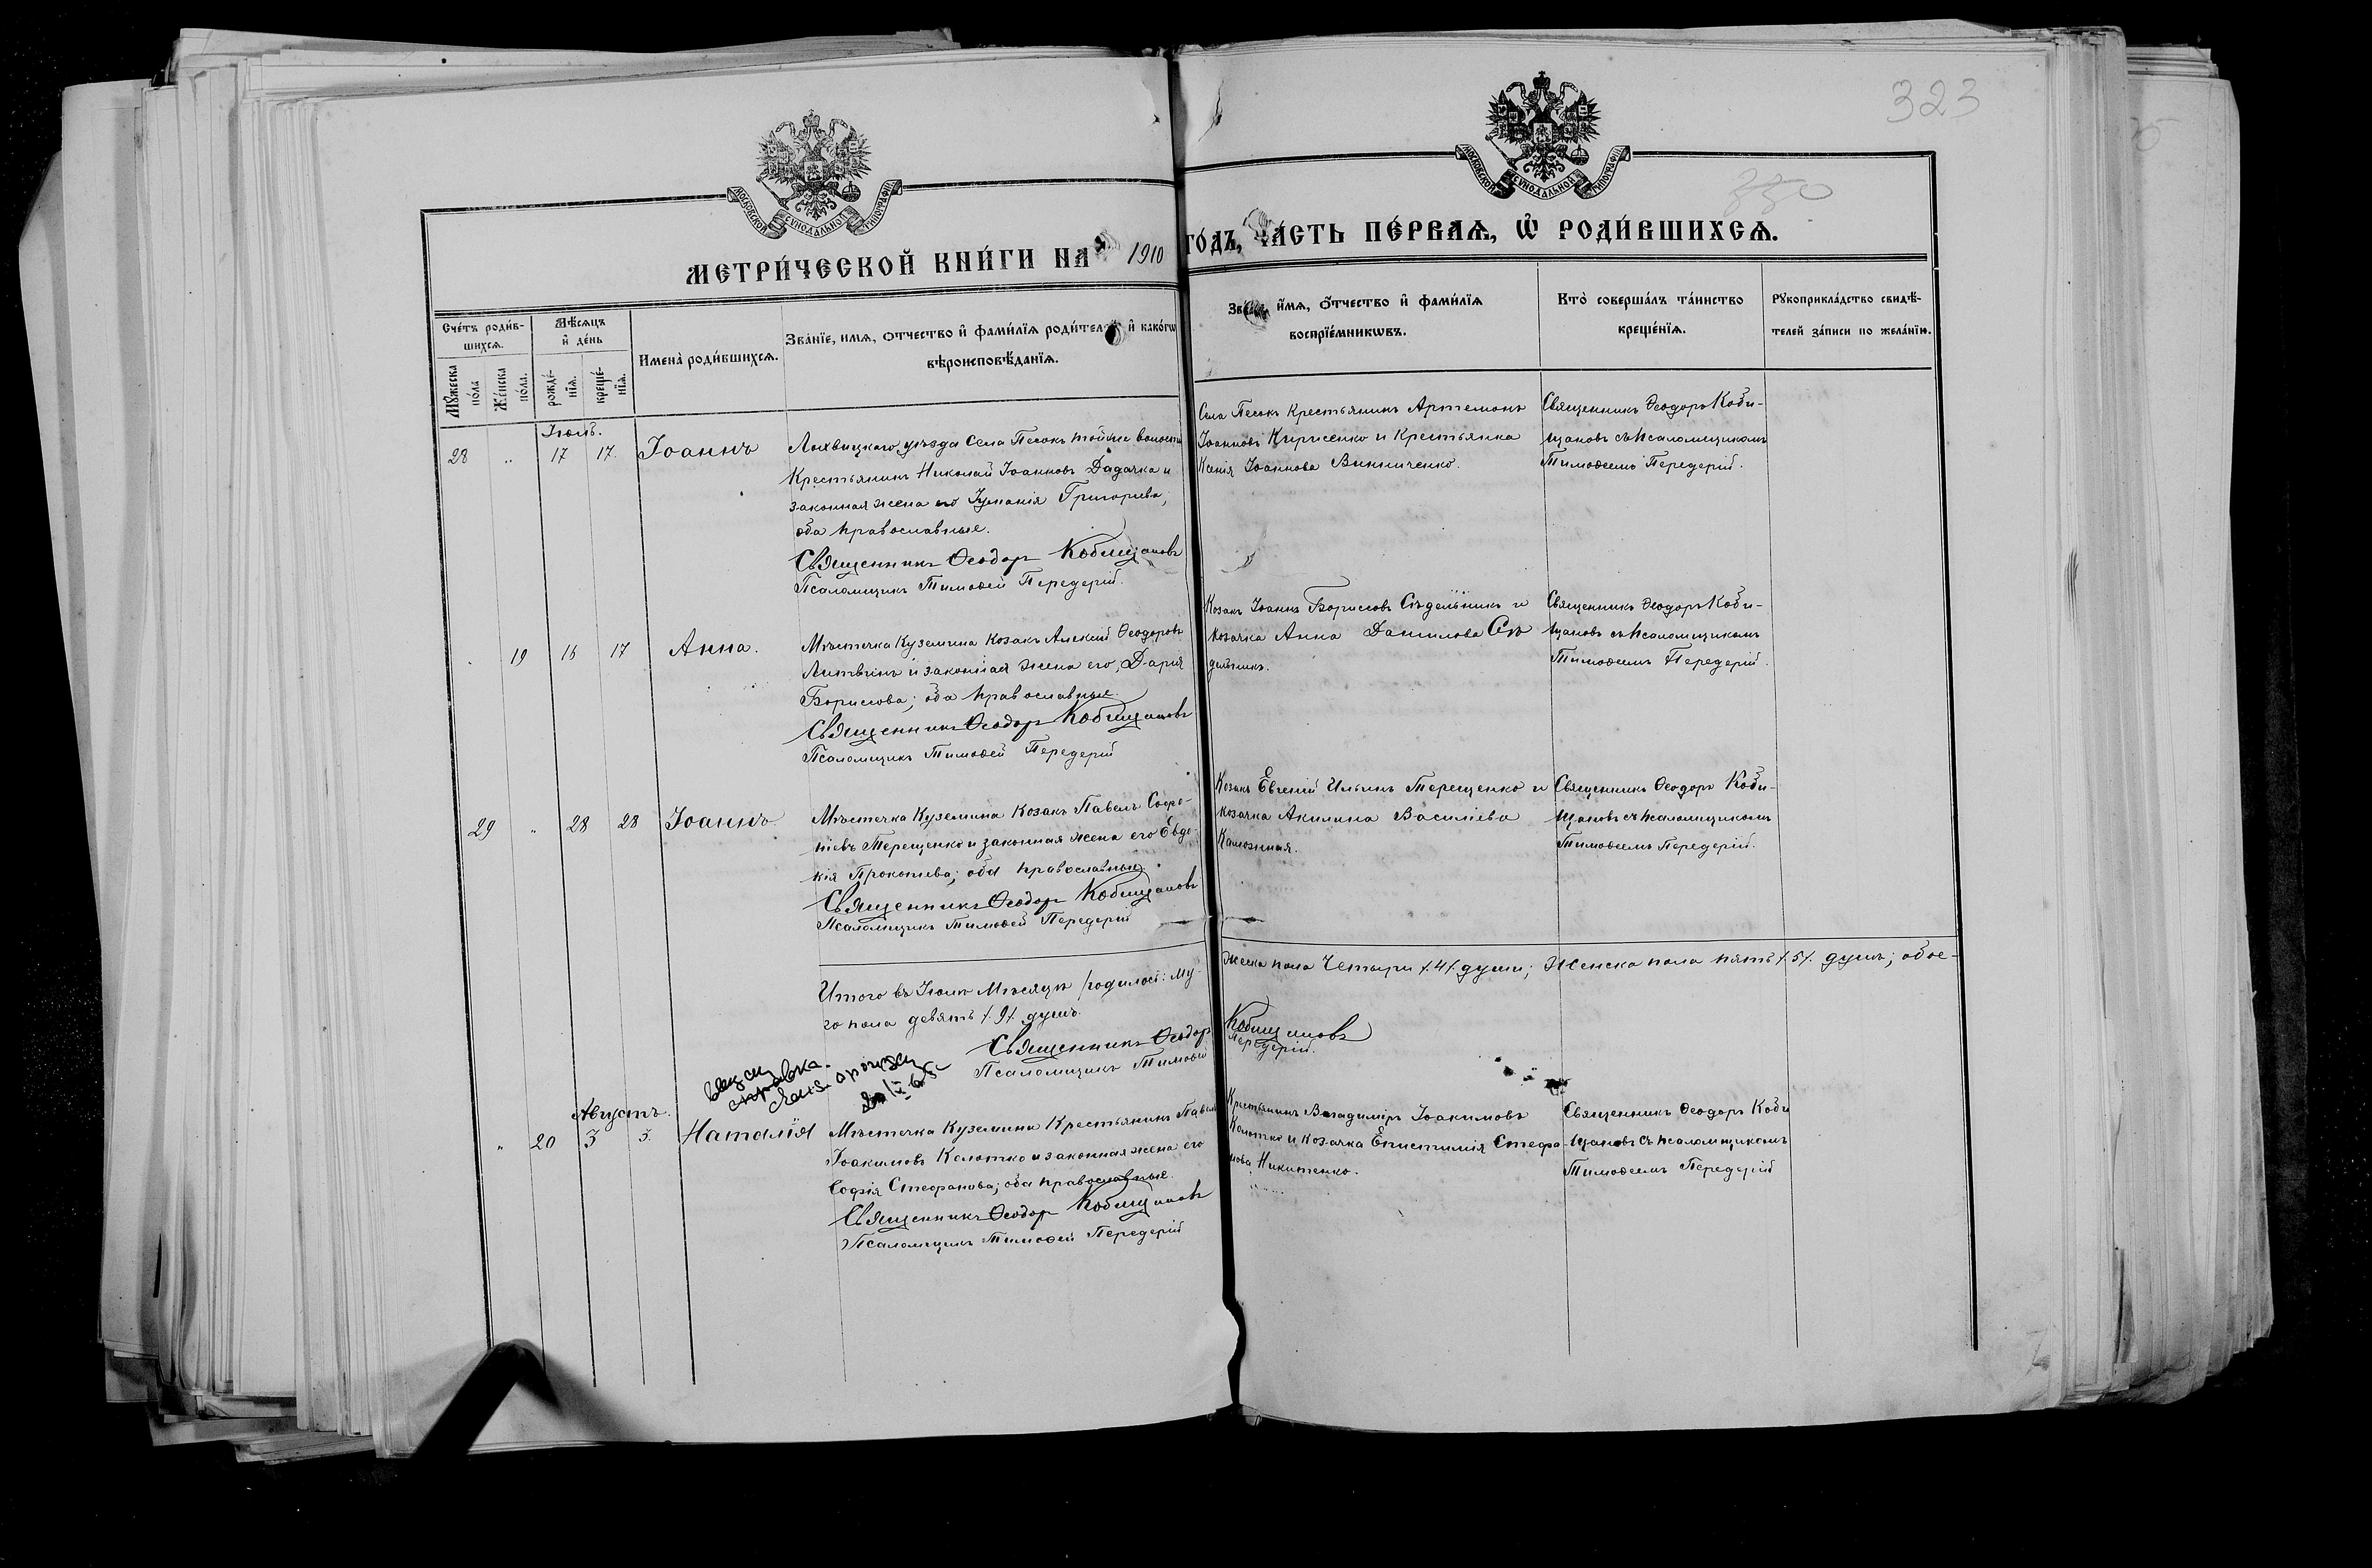 323
330
МОСКОВСКОЙ СѴНОДАЛЬНОЙ ТИПОГРАФІИ
МОСКОВСКОЙ СѴНОДАЛЬНОЙ ТИПОГРАФІИ
МЕТРИ́ЧЕСКОЙ КНИ́ГИ НА 1910 ГО́ДЪ, ЧА́СТЬ ПЕ́РВАѦ, Ѽ РОДИ́ВШИХСѦ.
Сче́тъ роди́в-
шихсѧ.
Мꙋ́жеска
по́ла
Же́нска
по́ла.
Мѣ́сѧцъ
и҆ де́нь
рожде́-
нїѧ.
креще́-
нїѧ.
Имена̀ роди́вшихсѧ.
Зва́нїе, имѧ, ѻтчество и҆ фами́лїѧ роди́телей и҆ како́гѡ
вѣроисповѣ́данїѧ.
Зва́нїе, и҆́мѧ, ѻ҆́тчество и҆ фами́лїѧ
воспрїе́мникѡвъ.
Кто̀ соверша́лъ та́инство
креще́нїѧ.
Рꙋкоприкла́дство свидѣ́-
телей за́писи по жела́нїю.
Іюль.
28 " 17 17. Іоаннъ
Лохвицкаго уѣзда Села Песокъ той же волости
Крестьянинъ Николай Іоанновъ Дадачка и
законная жена его Григорьева,
оба православные.
Священникъ Ѳеодоръ Кобищановъ
Псаломщикъ Тимоѳей Передерій.
Села Песокъ Крестьянинъ Артемонъ
Іоанновъ Кириченко и Крестьянка
Ксенія Іоаннова Винниченко.
Священникъ Ѳеодоръ Коби-
щановъ съ псаломщикомъ
Тимоѳеемъ Передерій.
" 19 16 17 Анна.
Мѣстечка Куземина Козакъ Алексій Ѳеодоровъ
Литвинъ и законная жена его, Дарія
Борисова; оба православные.
Священникъ Ѳеодоръ Кобищановъ
Псаломщикъ Тимоѳей Передерій
Козакъ Іоаннъ Борисовъ Сѣдельникъ и
козачка Анна Данилова Сѣ
дельникъ.
Священникъ Ѳеодоръ Коби-
щановъ съ псаломщикомъ
Тимоѳеемъ Передерій.
29 " 28 28 Іоаннъ
Мѣстечка Куземина Козакъ Павелъ Софро-
ніевъ Терещенко и законная жена его Евдо-
кія Прокопіева; оба православные.
Священникъ Ѳеодоръ Кобищановъ
Псаломщикъ Тимоѳей Передерій
Козакъ Евгеній Ильинъ Терещенко и
козачка Акилина Василіева
Священникъ Ѳеодоръ Коби-
щановъ съ псаломщикомъ
Тимоѳеемъ Передерій.
Итого въ Іюлѣ Мѣсяцѣ родилось: Му-
жеска пола Четыри /.4/. души; Женска пола пять /.5/. душъ; обое-
го пола девять /.9/. душъ.
Священникъ Ѳеодоръ Кобищановъ
Псаломщикъ Тимоѳей Передерій.
справка.
Августъ.
" 20 3 3. Наталія
Мѣстечка Куземина Крестьянинъ Павелъ
Іоакимовъ Колотко и законная жена его
Софія Стефанова; оба православные.
Священникъ Ѳеодоръ Кобищановъ
Псаломщикъ Тимоѳей Передерій
Крестьянинъ Владиміръ Іоакимовъ
Колотко и козачка Епистимія Стефа-
нова Никитенко.
Священникъ Ѳеодоръ Коби
щановъ съ псаломщикомъ
Тимоѳеемъ Передерій